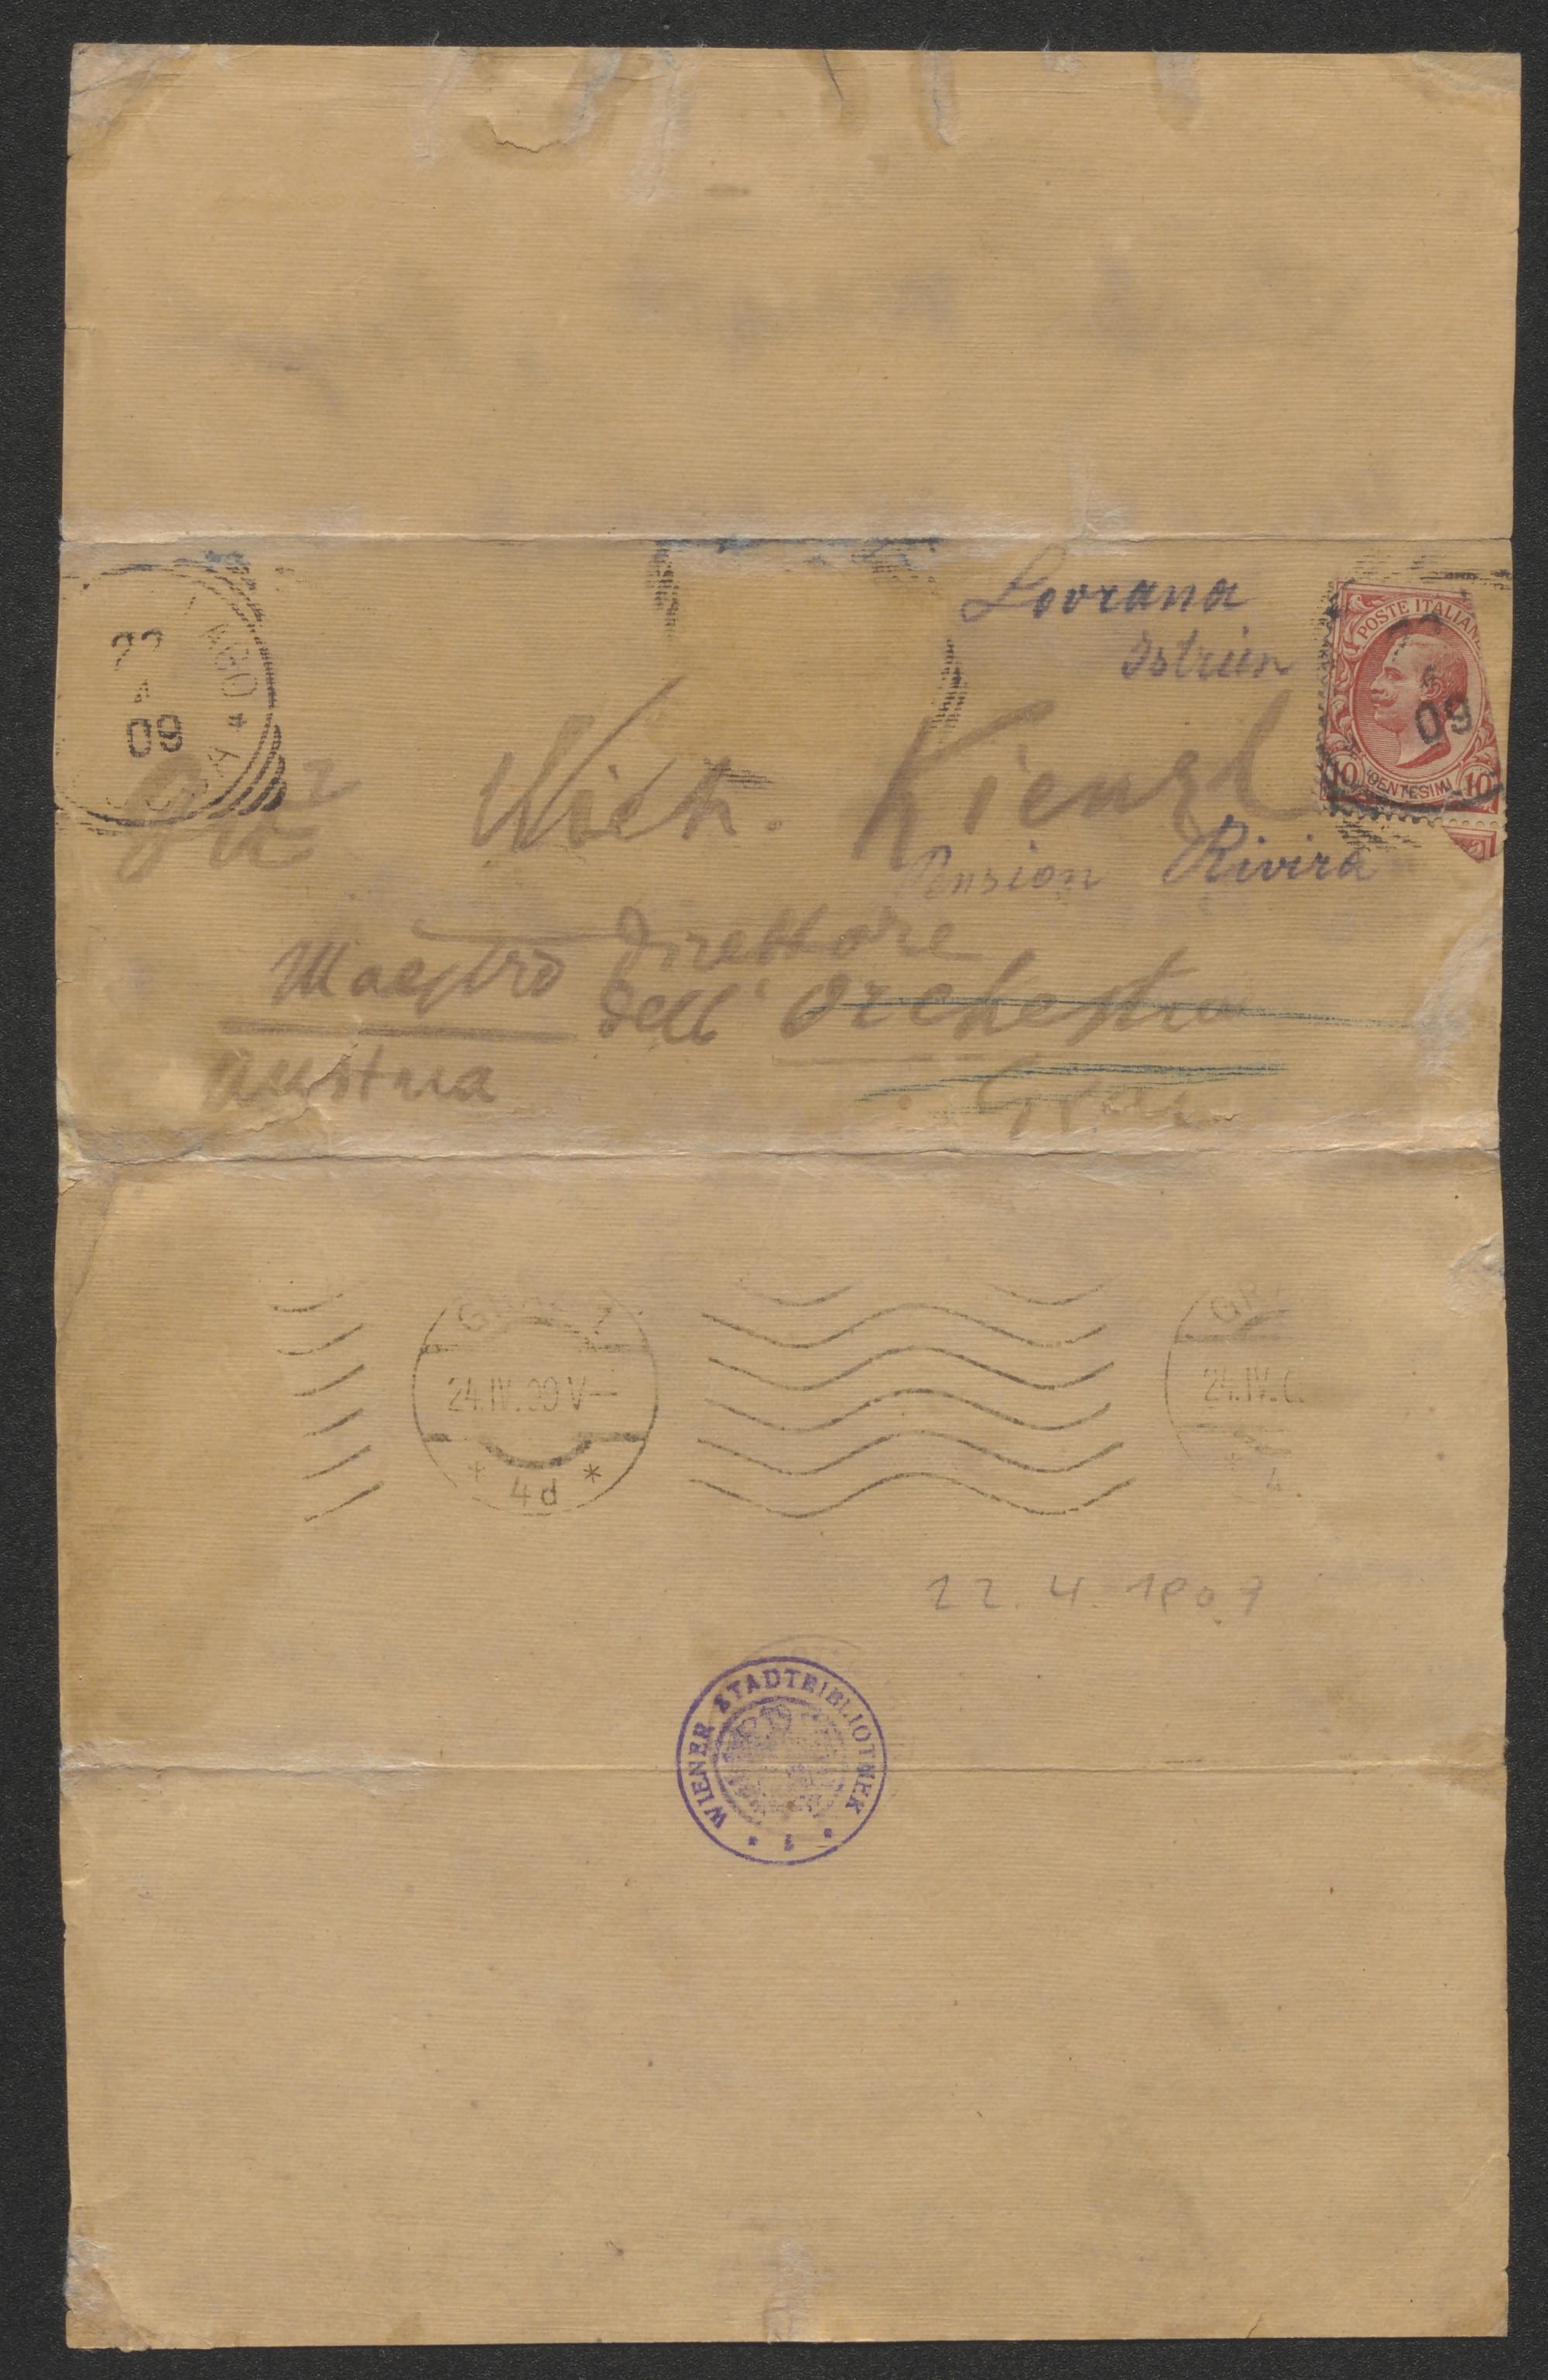 Lovrana
Istrien
POSTE ITALIAN
22
4
09
4
09
10 CENTESIMI 10
Kienzl
Pension Rivira
Maestro Direttore
dell' Orchestra
Austria
Graz
24.IV.09 V—
* 4d *
GR
24.IV.0
4
22. 4. 1909
WIENER STADTBIBLIOTHEK
* 1 *